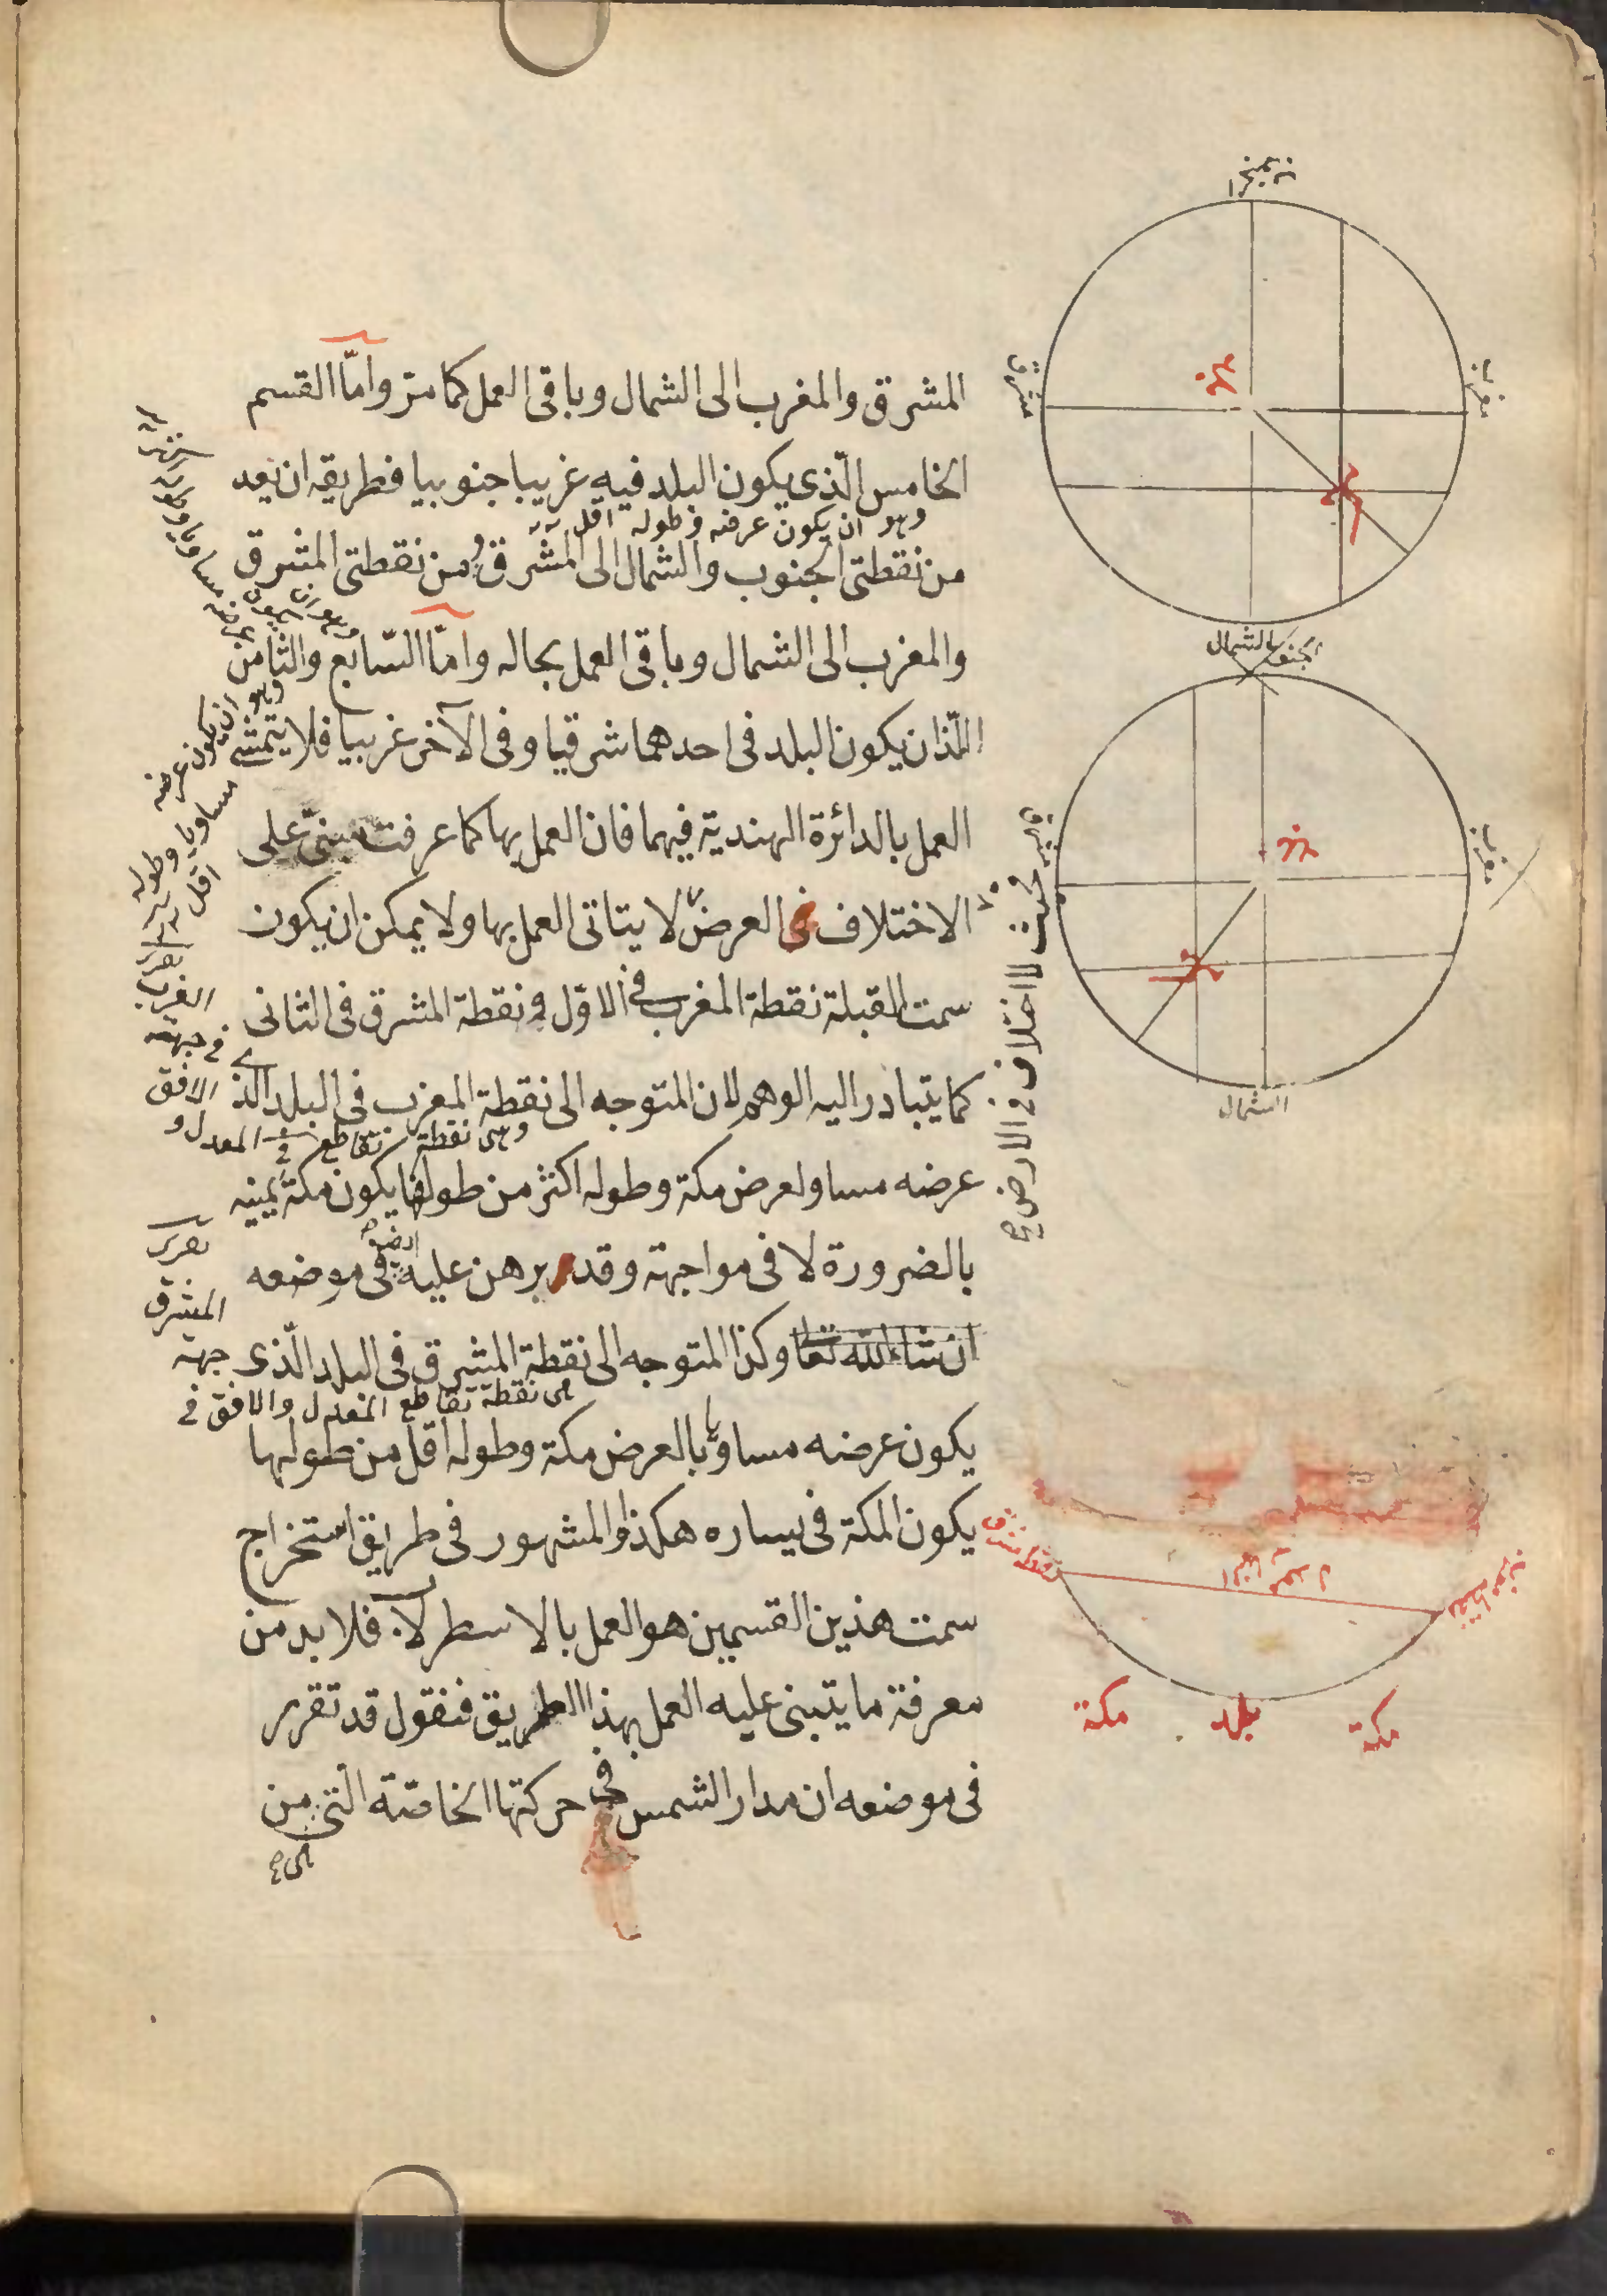 المشرق والمغرب الى الشمال وباقى العمل كما مر وامّا القسم
الخامس الّذى يكون البلد فيه غربيا جنوبيا فطريقه ان يعد
وهو ان يكون عرضه وطوله اقل
من نقطتى الجنوب والشمال الى المشرق ومن نقطتى المشرق
والمغرب الى الشمال وباقى العمل بحاله وامّا السّابع والثامن
اللّذان يكون البلد فى احدهما شرقيا وفى الآخر غربيا فلا يتمشى
العمل بالدائرة الهندية فيهما فان العمل بها كما عرفت مبنىّ على
الاختلاف فى العرض لا يتاتى العمل بها ولا يمكن ان يكون
سمت القبلة نقطة المغرب فى الاوّل ونقطة المشرق فى الثانى
كما يتبادر اليه الوهم لان المتوجه الى نقطة المغرب فى البلد الذى
وهى نقطة تقاطع المعدل و
عرضه مساو لعرض مكة وطوله اكثر من طولها يكون مكة يمينه
بالضرورة لا فى مواجهته وقد برهن عليه ايضا فى موضعه
ان شاء الله تعا وكذا المتوجه الى نقطة المشرق فى البلد الّذى
هى نقطة تقاطع المعدل والافق فى جهة
يكون عرضه مساويا بالعرض مكة وطوله اقل من طولها
يكون المكة فى يساره هكذا والمشهور فى طريق استخراج
سمت هذين القسمين هو العمل بالاسطرلاب فلا بد من
معرفة ما يتبنى عليه العمل بهذا الطريق فنقول قد تقرر
فى موضعه ان مدار الشمس فى حركتها الخاصّة الّتى من
هى
وهو ان يكون عرضه
مساويا وطوله
اقل
الغرب
فى جهة
الافق
المشرق
حيث لا اختلاف فى الارض
مشرق
مغرب
الشمال
الجنوب
مغرب
الشمال
نقطه مشرق
معدل النهار
نقطه مغرب
مكة
بلد
مكة